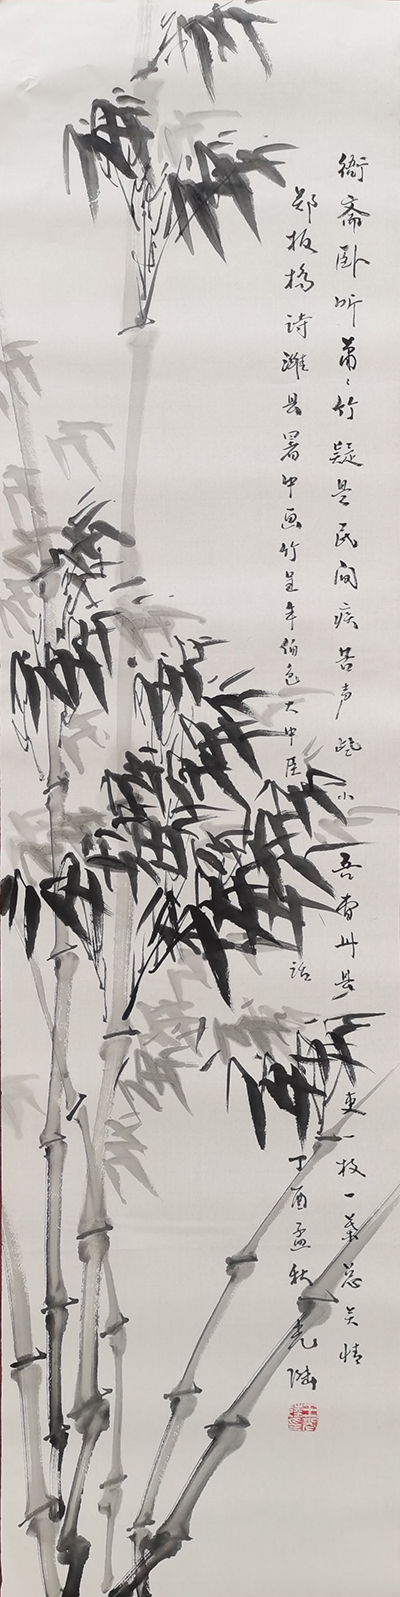 衙斋卧听萧〻竹疑是民间疾苦声些小吾曹州县吏一枝一叶总关情
郑板桥诗潍县署中画竹呈年伯包大中丞
丁酉孟秋